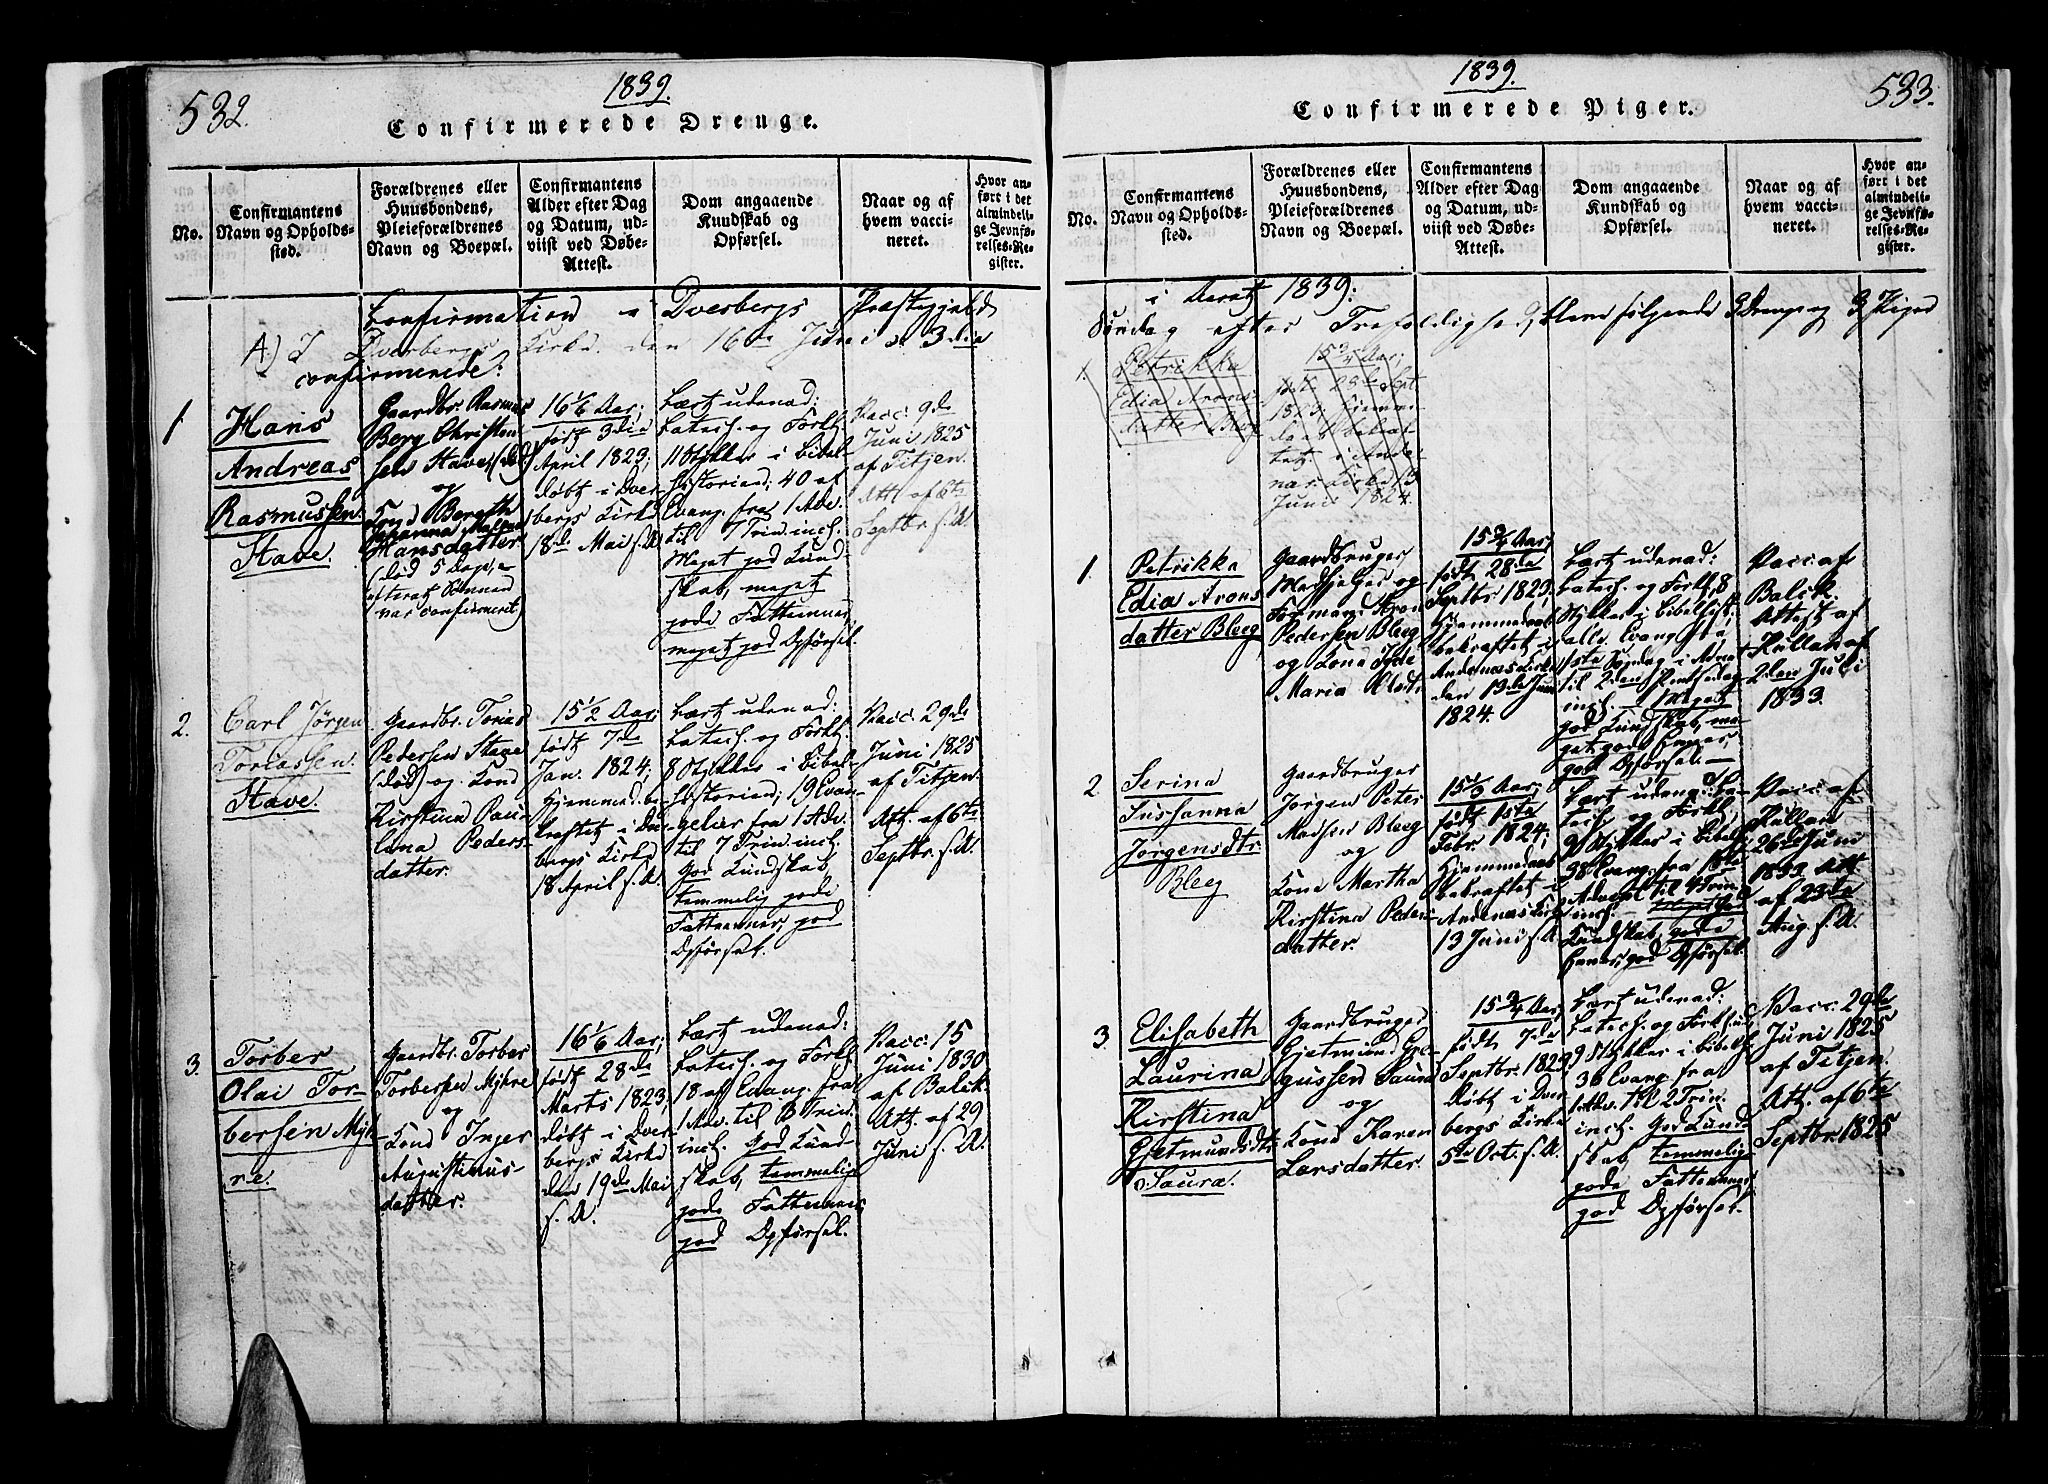 532.
1839.
Confirmerede Drenge.
No.
Confirmantens
Navn og Opholds-
sted.
Forældrenes eller
Huusbondens,
Pleieforældrenes
Navn og Boepæl.
Confirmantens
Alder efter Dag
og Datum, ud-
viist ved Døbe-
Attest.
Dom angaaende
Kundskab og
Opførsel.
Naar og af
hvem vacci-
neret.
Hvor an-
ført i det
almindeli-
ge Jevnfø-
relses-Re-
gister.
Confirmation i Dverbergs Præstegjeld
A.) I Dverbergs Kirke den 16de Juni s. 3die
confirmerede:
1
Hans
Andreas
Rasmussen
Stave
Gaardbr. Rasmus
Berg Christen
sen Stave, (død)
og
Kone Bereth
Johanna
Hansdatter
(død 5 Dage
efterat Sønnen
var confirmeret)
16 1/6 Aar;
født 3die
April 1823;
døbt i Dver
bergs Kirke
18de Mai s. A
Lært udenad:
Catech. og Forkl.
11 Stykker i Bibel
historien; 40 af
Evang. fra 1 Adv.
til 7 Trin. incl.
Meget god Kund
skab, meget
gode Fatteevner,
meget god Opførsel.
Vacc. 9de
Juni 1825
af Titjen.
Att. af 6te
Septbr. s. A
2.
Carl Jørgen
Toriassen
Stave.
Gaardbr. Torias
Pedersen Stave
(død) og Kone
Kirstina Pau-
lina Peders-
datter.
15 1/2 Aar;
født 7de
Jan. 1824;
Hjemmed. be
kræftet i Dver
bergs Kirke
18 April s. A
Lært udenad:
Catech. og Forkl.
8 Stykker i Bibel-
historien; 19 Evan-
gelier fra 1 Adv.
til 7 Trin. incl.
God Kundskab,
temmelig gode
Fatteevner, god
Opførsel.
Vacc. 29de
Juni 1825
af Titjen.
Att. af 6te
Septbr. s. A.
3.
Torber
Olai Tor-
bersen Myh-
re.
Gaardbr. Torber
Torbersen Myhre
og
Kone Inger
Augustinus-
datter.
16 1/6 Aar;
født 28de
Marts 1823,
døbt i Dver
bergs Kirke
den 19de Mai
s. A.
Lært udenad:
Catech. og Forkl.
18 af Evang. fra
1 Adv. til 3 Trin.
incl. God Kund-
skab, temmelig
gode Fatteevner,
god Opførsel.
Vacc. 15
Juni 1830
af Balck
Att. af 29
Juni s. A.
1839.
533.
Confirmerede Piger.
No.
Confirmantens
Navn og Opholds-
sted.
Forældrenes eller
Huusbondens,
Pleieforældrenes
Navn og Boepæl.
Confirmantens
Alder efter Dag
og Datum, ud-
viist ved Døbe-
Attest.
Dom angaaende
Kundskab og
Opførsel.
Naar og af
hvem vacci-
neret.
Hvor an-
ført i det
almindeli-
ge Jevnfø-
relses-Re-
gister.
i Aaret 1839:
Søndag efter Trefoldighed, bleve følgende 3 Drenge og 3 Piger
1.
Petrikka
Edia Arons-
datter Bleeg
15 3/4 Aar;
født 28de Sept
1823, Hjemme-
daab bekræf-
tet i Ande-
næs Kirke 13
Juni 1824.
1.
Petrikka
Edia Arons
datter Bleeg
Gaardbruger
Medhjelper og
Formand Aron
Pedersen Bleeg
og Kone Inde
Maria Olsdtr.
15 3/4 Aar;
født 28de
Septbr. 1823,
Hjemmedaab
bekræftet i
Andenæs Kirke
den 13de Juni
1824.
Lært udenad:
Catech. og Forkl. 8
Stykker i Bibelhist.,
alle Evang. fra
1ste Søndag i Advent
til 2den Pintsedag
incl. — Meget
god Kundskab, me-
get gode Evner,
god Opførsel. —
Vacc. af
Balck.
Attest af
Kullan af
2den Juli
1833.
2
Serina
Susanna
Jørgensdtr.
Bleeg
Gaardbruger
Jørgen Peter
Madsen Bleeg
og
Kone Martha
Kirstina Peders
datter.
15 1/3 Aar;
født 1ste
Febr. 1824;
Hjemmedaab
bekræftet i
Andenæs Kirke
13 Juni s. A.
Lært udenad: Ca-
tech. og Forkl.,
9 Stykker i Bibelh.
38 Evang. fra 1ste
Advent til 4 Trin.
incl. —
Kundskab, gode
Evner, god Opførsel.
Vacc. af
Kullan
26de Juni
1833. Att
af 23de
Aug. s. A.
3.
Elisabeth
Laurina
Kirstina
Gjetmundsdtr.
Saura.
Gaardbruger
Gjetmund Gre-
gussen Saura
og
Kone Karen
Larsdatter.
15 3/4 Aar,
født 7de
Septbr. 1823
døbt i Dver
bergs Kirke
5te Oct. s. A.
Lært udenad:
Catech. og Forkl. hid
9 Stykker i Bibelh.
36 Evang. fra
1 Adv. til 2 Trin.
incl. God Kund-
skab, temmelig
gode Fatteevner,
god Opførsel.
Vacc. 29de
Juni 1825
af Titjen.
Att. af 6te
Septbr. 1825